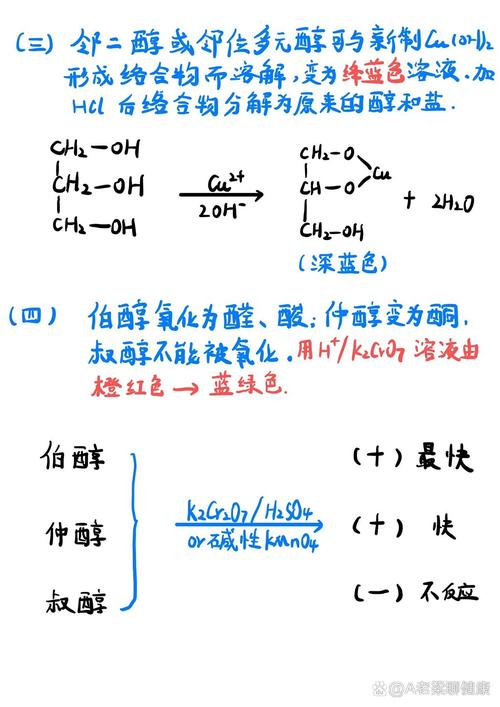 (三) 邻二醇或邻位多元醇可与新制Cu(OH)2
形成络合物而溶解,变为绛蓝色溶液.加
HCl 后络合物分解为原来的醇和盐.
CH2-OH
CH2-OH
CH2-OH
Cu2+
2OH-
CH2-O
CH-O
Cu
CH2-OH
+ 2H2O
(深蓝色)
(四) 伯醇氧化为醛、酸;仲醇变为酮,
叔醇不能被氧化.用H+/K2CrO7 溶液由
橙红色→蓝绿色.
伯醇
仲醇
叔醇
K2Cr2O7/H2SO4
or碱性KMnO4
(+) 最快
(+) 快
(-) 不反应
@A老梁聊健康